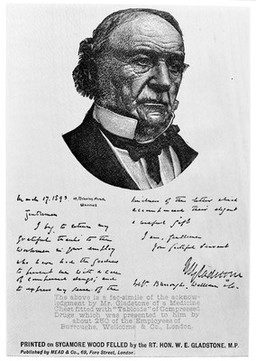 March 17. 1893
Gentlemen
I beg to return my
grateful thanks to the
Workmen in your employ
who have had the goodness
to present me with a case
of compressed drugs, and
to express my sense of the
kindness of the letter which
accompanied their elegant
& useful gift
I am, gentlemen
Your faithful servant
WGladstone
The above is a fac-simile of the acknow-
ledgment by Mr. Gladstone of a Medicine
Chest fitted with "Tabloids" of Compressed
Drugs which was presented to him by
about 250 of the Employees of
Burroughs, Wellcome & Co., London.
PRINTED on SYCAMORE WOOD FELLED by the RT. HON. W. E. GLADSTONE, M.P.
Published by MEAD & Co., 69, Fore Street, London.